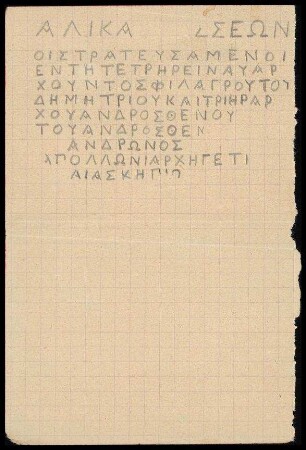 ΑΛΙΚΑ ΣΣΕΩΝ
ΟΙΣΤΡΑΤΕΥΣΑΜΕΝΟΙ
ΕΝΤΗΤΕΤΡΗΡΕΙΝΑΥΑΡ
ΧΟΥΝΤΟΣΦΙΛΑΓΡΟΥΤΟΥ
ΔΗΜΗΤΡΙΟΥΚΑΙΤΡΙΗΡΑΡ
ΧΟΥΑΝΔΡΟΣΘΕΝΟΥ
ΤΟΥΑΝΔΡΟΣΘΕΝ
ΑΝΔΡΩΝΟΣ
ΑΠΟΛΛΩΝΙΑΡΧΗΓΕΤΙ
ΑΙΑΣΚΗΠΙΩ